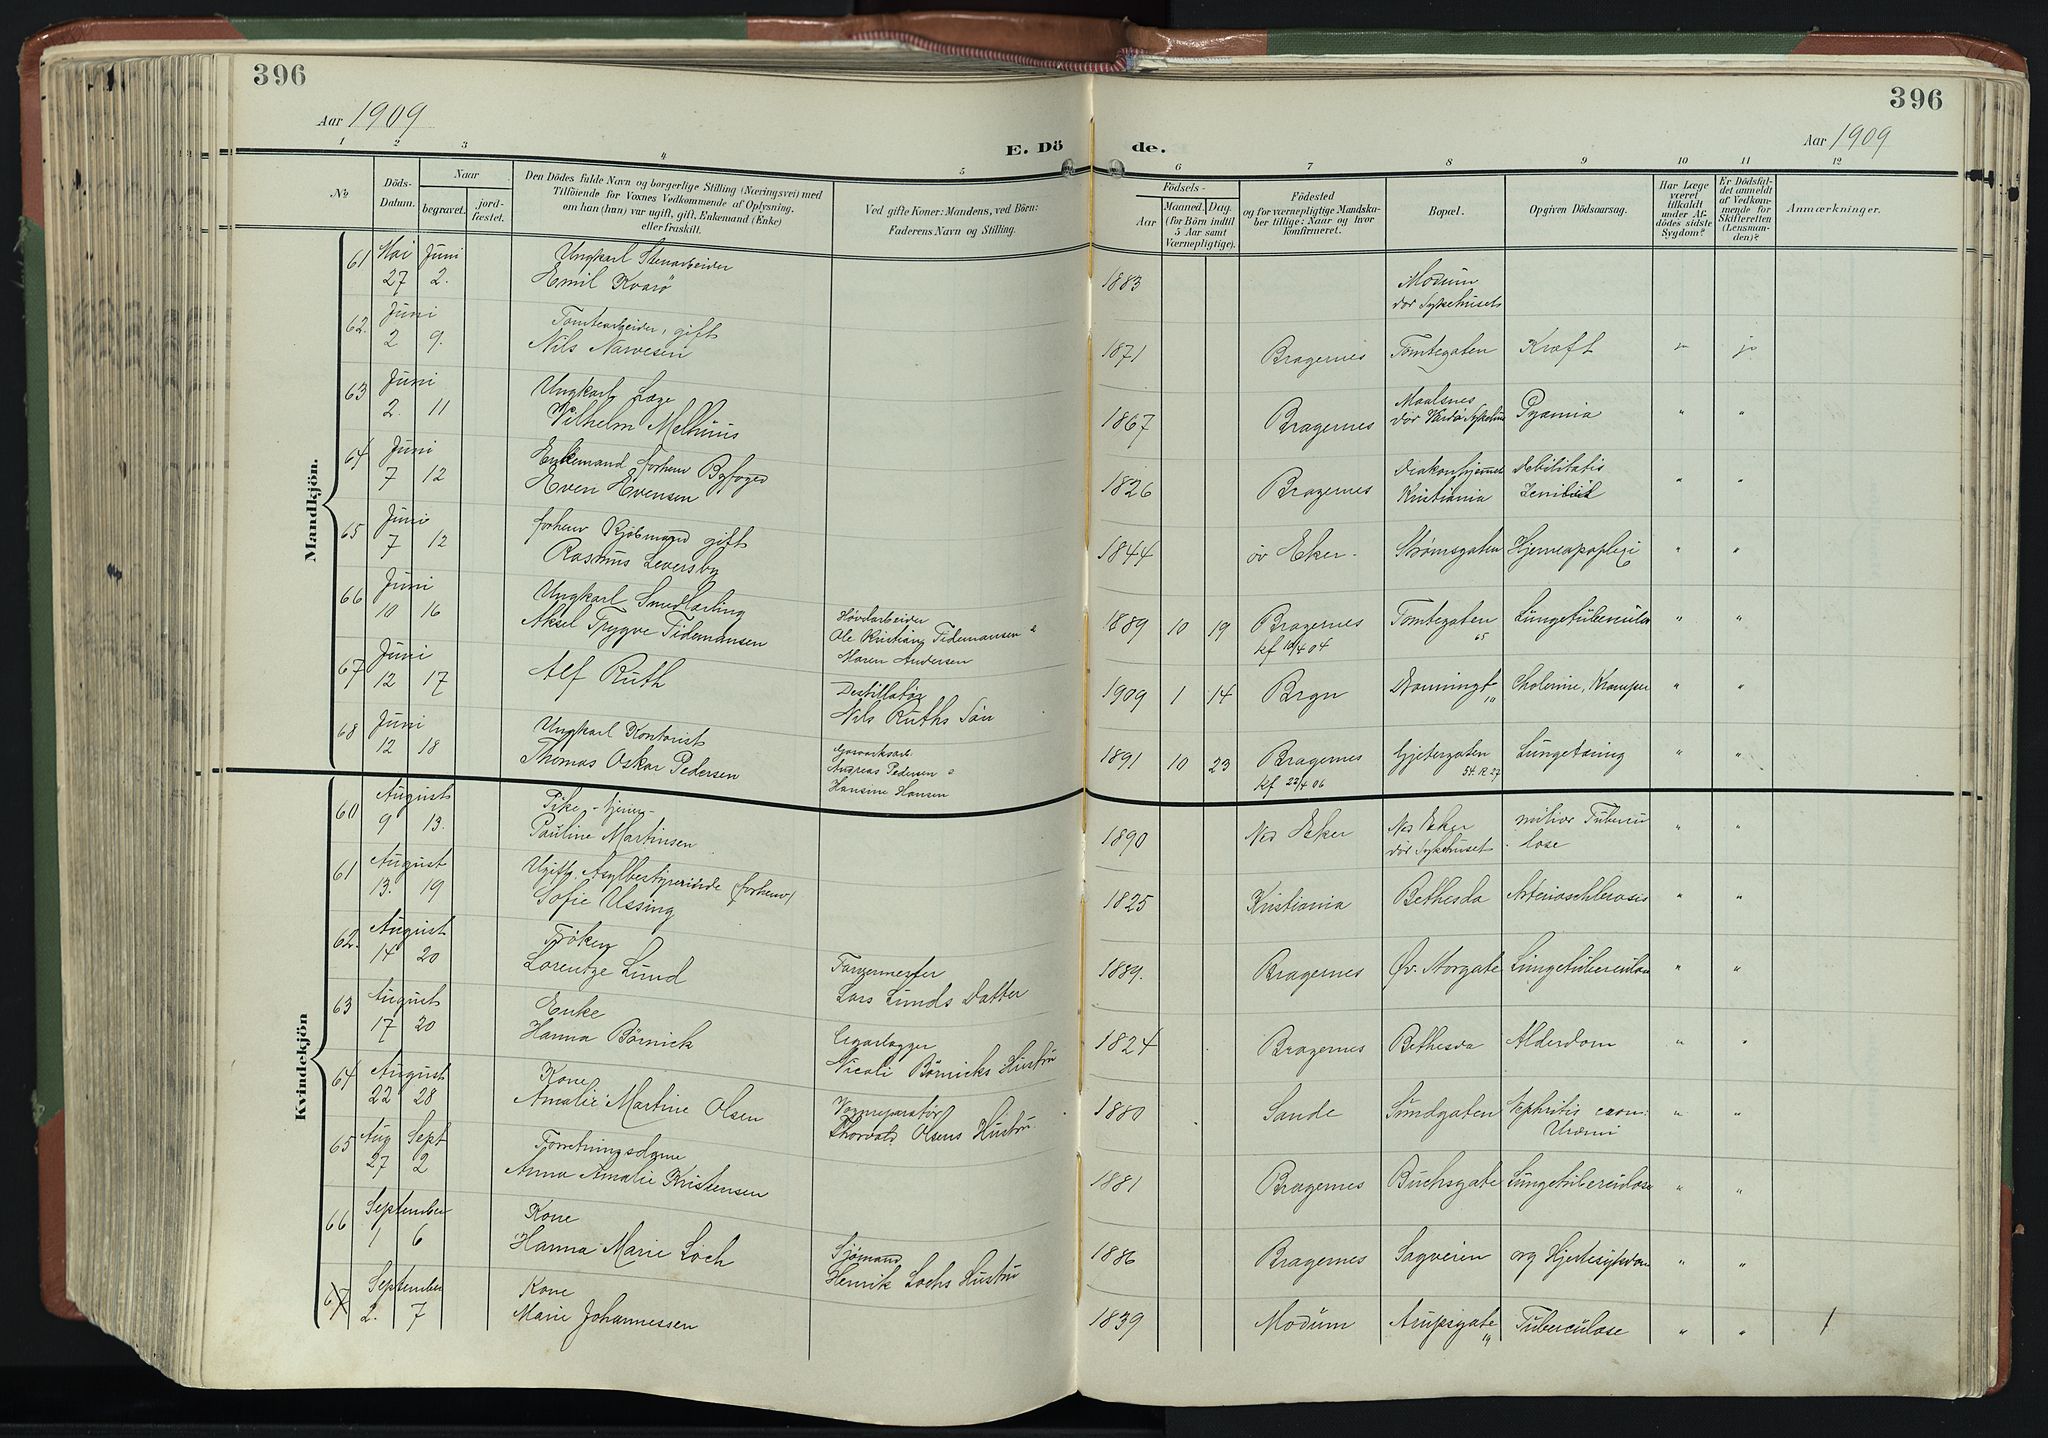 396
396
Aar 1909
Aar 1909
E. Dö de.
1 2 3 4 5 6 7 8 9 10 11 12
No.
Döds-Datum.
Naar
begravet.
jord-fæstet.
Den Dödes fulde Navn og borgerlige Stilling (Næringsvei) med
Tilföiende for Voxnes Vedkommende af Oplysning,
om han (hun) var ugift, gift, Enkemand (Enke)
eller fraskilt.
Ved gifte Koner: Mandens, ved Börn:
Faderens Navn og Stilling.
Födsels-
Aar
Maaned. Dag.
(for Börn indtil
5 Aar samt
Værnepligtige).
Födested
og for værnepligtige Mandsku-
ber tillige: Naar og hvor
konfirmeret.
Bopæl.
Opgiven Dödsaarsag.
Har Læge
været
tilkaldt
under Af-
dödes sidste
Sygdom?
Er Dödsfal-
det anmeldt
af Vedkom-
mende for
Skifteretten
(Lensman-
den)?
Anmærkninger.
Mandkjön.
61 Mai 27 Juni 2. Ungkarl Stenarbeider
Emil Kvarø 1883 Modum
dør Sykehuset
62. Juni 2 9. Tomtearbeider, gift
Nils Narvesen 1871 Bragernes Tomtegaten Kræft ja ja
63 Juni 2. 11 Ungkarl Læge
Vilhelm Melhuus 1867 Bragernes Maalsnes
dør Vardø Sykehus Pyæmia " "
64 Juni 7 12 Enkemand forhenv Byfoged
Even Evensen 1826 Bragernes Diakonhjemmet
Kristiania Debilitatis
" "
65 Juni 7 12 forhenv Kjøbmand gift
Rasmus Leversby 1844 øv Eker. Strømsgaten Hjerneapoplexi " "
66 Juni 10 16 Ungkarl Smedlærling
Aksel Trygve Tidemansen Høvdarbeider
Ole Kristian Tidemansen o
Maren Andersen 1889 10 19 Bragernes
kf 10/4 04 Tomtegaten
65 Lungetuberculos " "
67 Juni 12 17 Alf Ruth Destillatør
Nils Ruths Søn 1909 1 14 Brgn Dronningt
10 Cholerine, Kramper " "
68 Juni 12 18 Ungkarl Kontorist
Thomas Oskar Pedersen Gasverksarb
Andreas Pedersen o
Hansine Hansen 1891 10 23 Bragernes
kf 22/4 06 Gjetergaten
Lungetæring " "
Kvindekjön
60 August 9 13. Pike, tjening-
Pauline Martinsen 1890 Ned Eker Ned Eker
dør Sykehuset miliær Tubercu
lose " "
61 August 13. 19 Ugift, Asylbestyrerinde (forhenv)
Sofie Ussing 1825 Kristiania Bethesda Arterioschlerosis " "
62. August 14 20 Frøken
Lorentze Lund Farvermester
Lars Lunds Datter 1889. Bragernes Øv. Storgate Lungetuberculose " "
63 August 17 20 Enke
Hanna Børnick Cigarlagger
Nicoli Børnicks Hustru 1824 Bragernes Bethesda Alderdom " "
64 August 22 28 Kone
Amalie Martine Olsen
Thorvald Olsens Hustru 1880 Sande Sundgaten Nephritis cron:
Uræmi " "
65 Aug 27 Sept 2 Forretningsdame
Anna Amalie Kristensen 1881 Bragernes Buchsgate Lungetuberculose " "
66 September 1 6 Kone
Hanna Marie Loch Sjømand
Henrik Lochs Hustru 1886 Bragernes Sagveien org Hjertesykdom " "
67 September 2. 7 Kone
Marie Johannessen 1839 Modum Arupsgate
19 Tuberculose " " 1